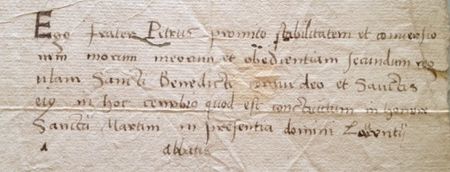 Ego frater Petrus promitto stabilitatem et conversio
nem morum meorum et obedientiam secundum reg
ulam Sancti Benedicti deo et Sanctis
eius in hoc cenobio quod est constructum in honore
Sancti Martini in presentia domini
abbatis